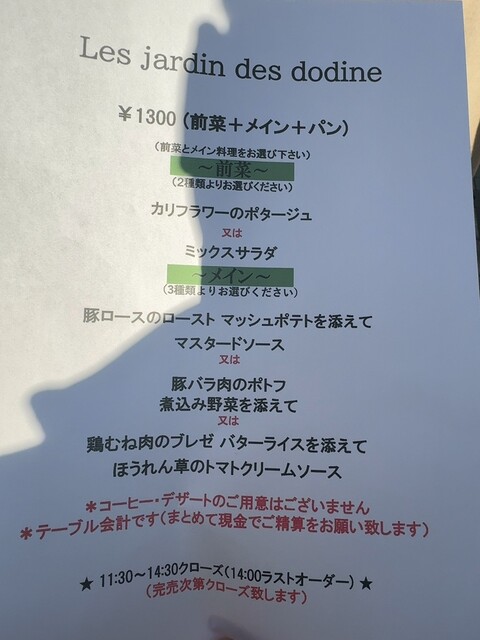 Les jardin des dodine
￥1300（前菜＋メイン＋パン）
（前菜とメイン料理をお選び下さい）
～前菜～
（2種類よりお選びください）
カリフラワーのポタージュ
又は
ミックスサラダ
～メイン～
（3種類よりお選びください）
豚ロースのロースト マッシュポテトを添えて
マスタードソース
又は
豚バラ肉のポトフ
煮込み野菜を添えて
又は
鶏むね肉のブレゼ バターライスを添えて
ほうれん草のトマトクリームソース
＊コーヒー・デザートのご用意はございません
＊テーブル会計です（まとめて現金でご精算をお願い致します）
★ 11:30～14:30クローズ（14:00ラストオーダー）★
（完売次第クローズ致します）